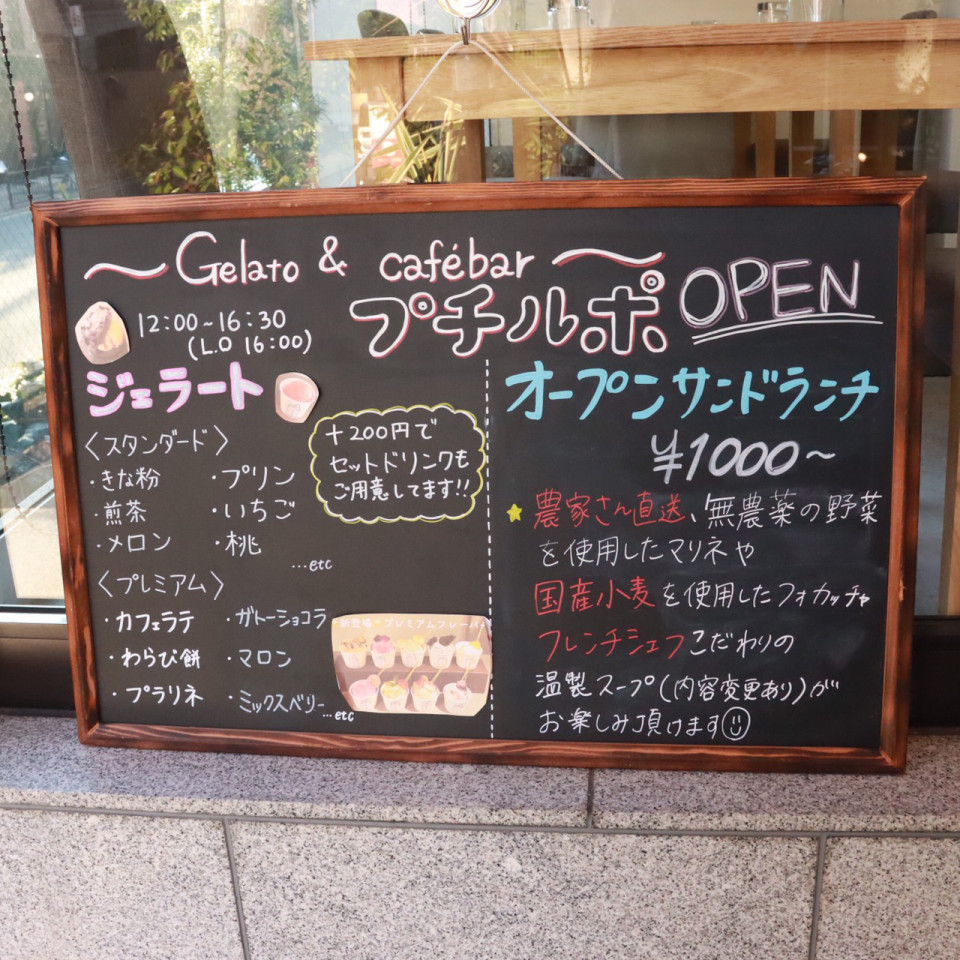 〜 Gelato & cafébar 〜
プチルポ OPEN
12:00~16:30
(L.O 16:00)
ジェラート
〈スタンダード〉
・きな粉 ・プリン
・煎茶 ・いちご
・メロン ・桃
...etc
〈プレミアム〉
・カフェラテ ・ガトーショコラ
・わらび餅 ・マロン
・プラリネ ・ミックスベリー
...etc
+200円で
セットドリンクも
ご用意してます!!
新登場 プレミアムフレーバー
オープンサンドランチ
¥1000~
★農家さん直送、無農薬の野菜
を使用したマリネや
国産小麦を使用したフォカッチャ
フレンチシェフこだわりの
温製スープ(内容変更あり)が
お楽しみ頂けます☺